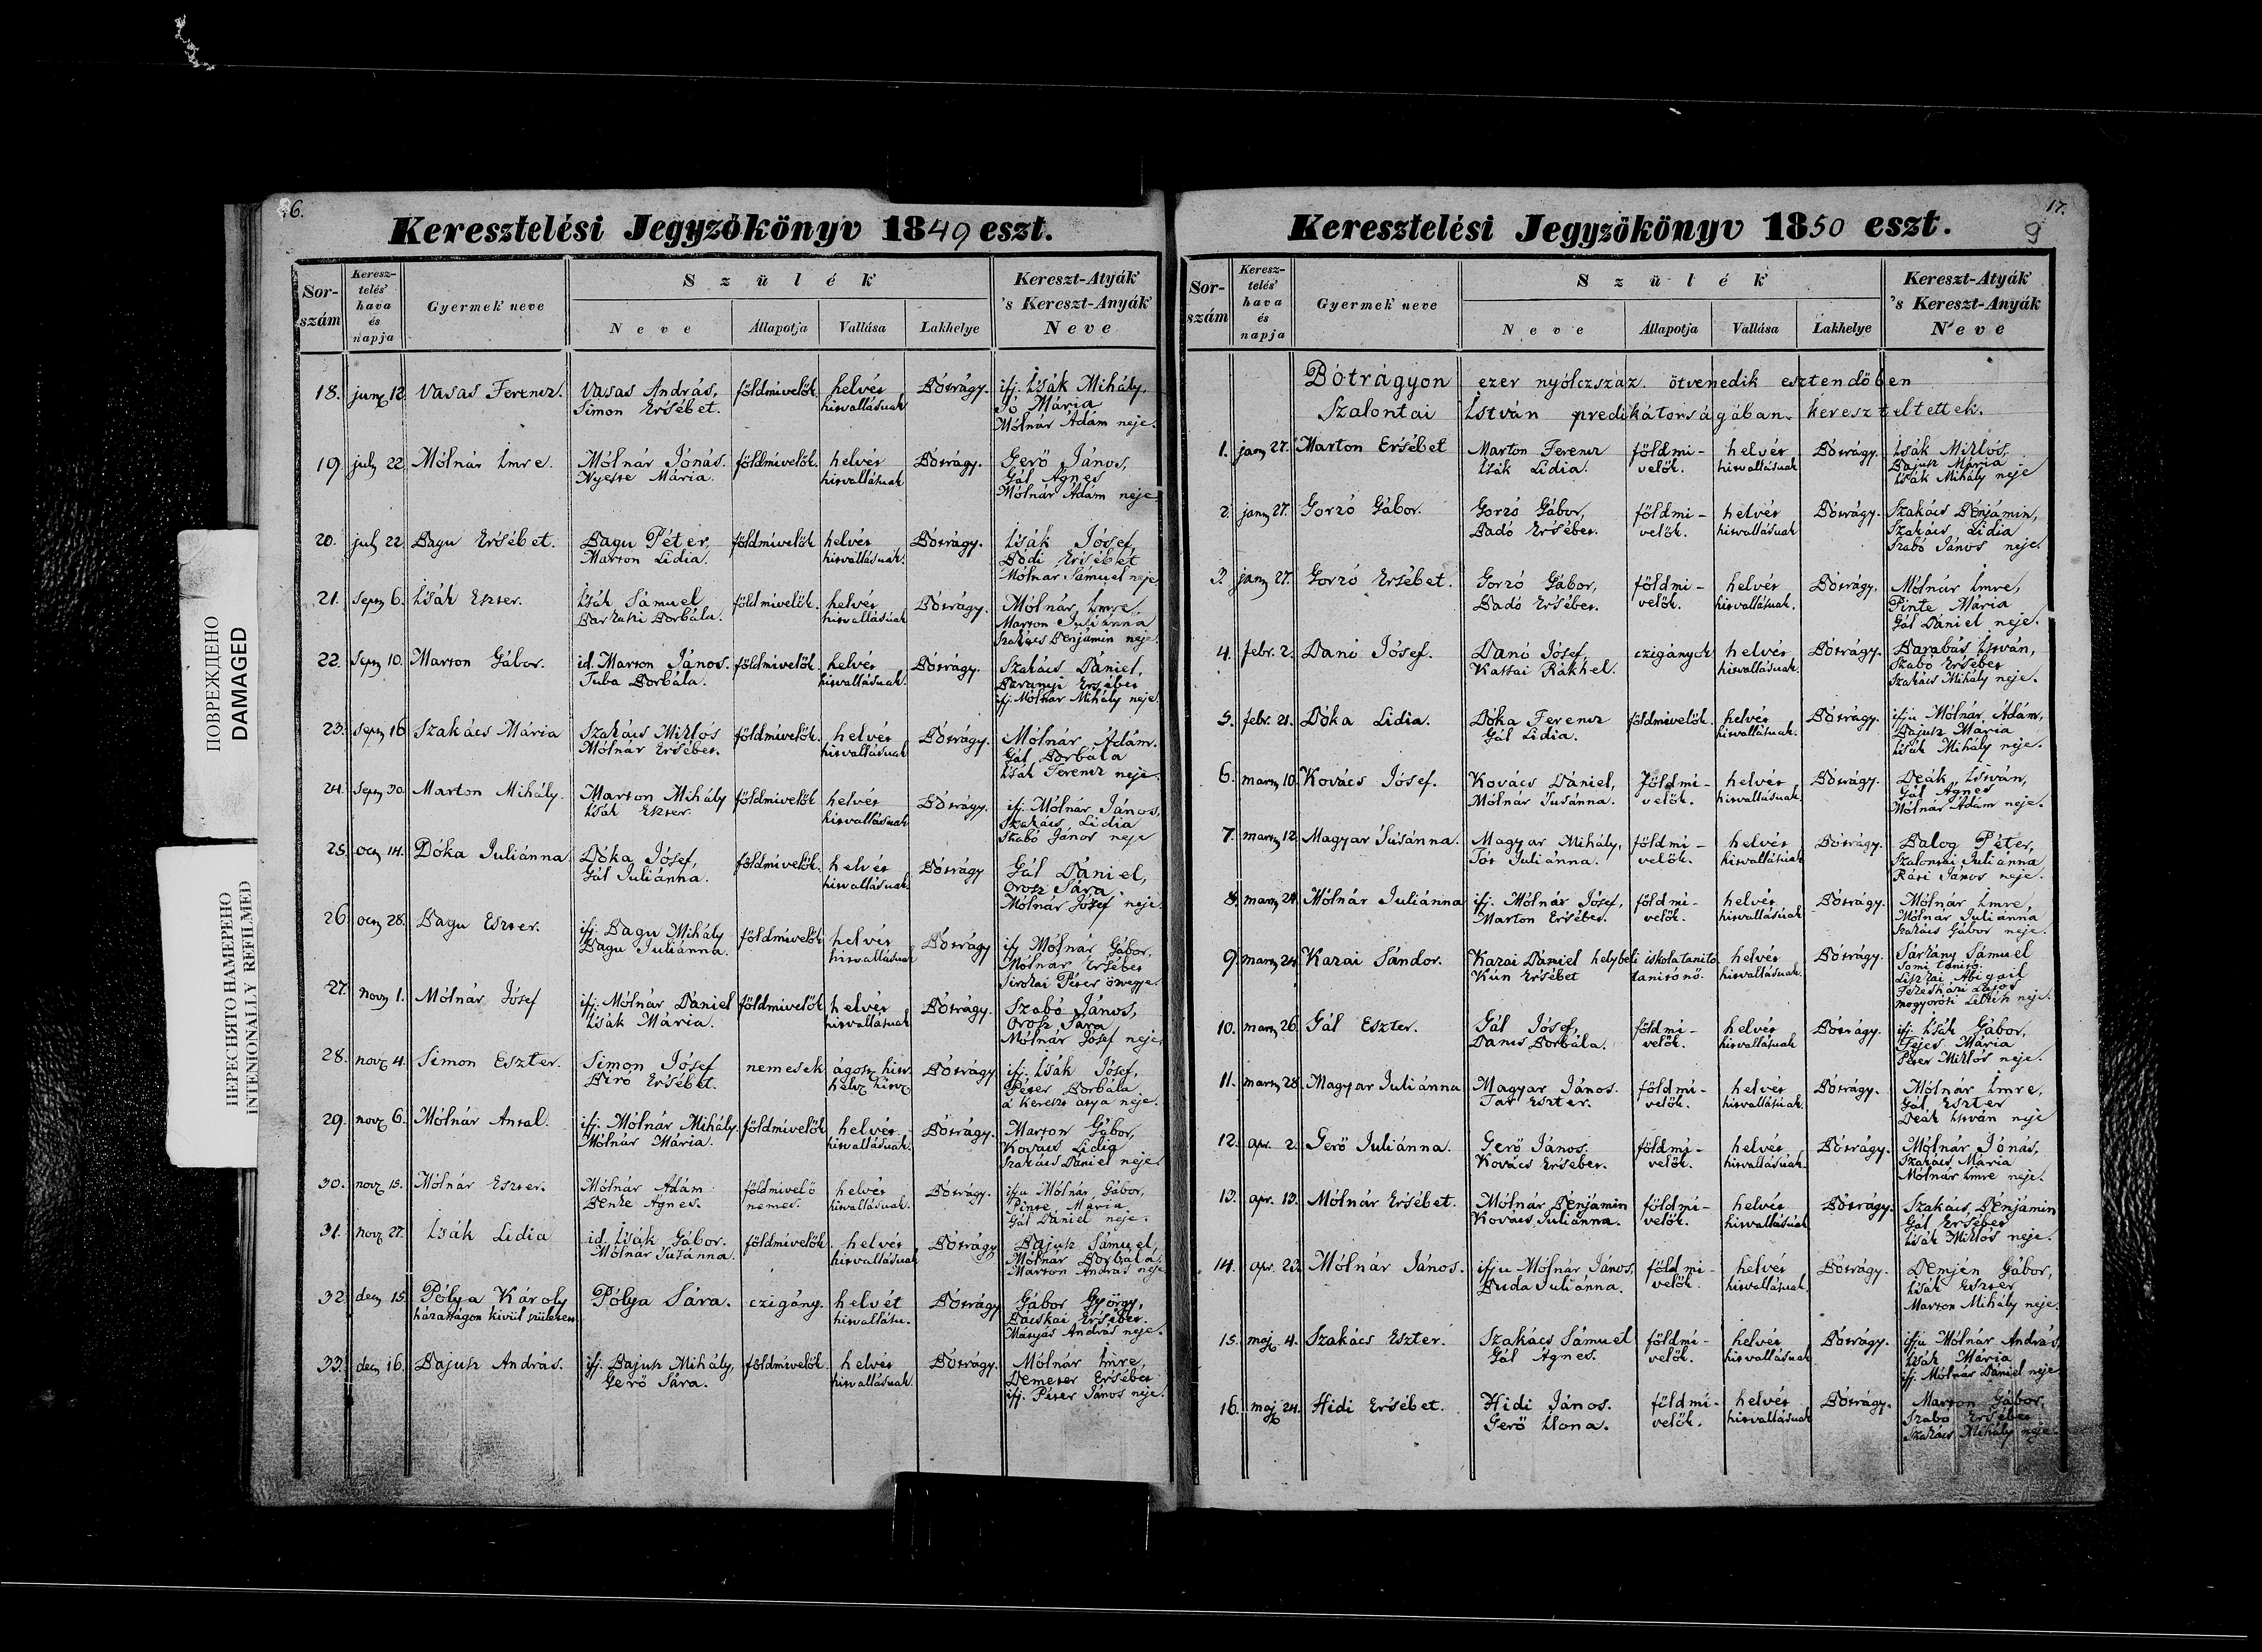 ПОВРЕЖДЕНО
DAMAGED
ПЕРЕСНЯТО НАМЕРЕНО
INTENIONALLY REFILMED
16.
Keresztelési Jegyzökönyv 1849 eszt.
Sor-szám
Keresz-telés' hava és napja
Gyermek neve
Szülék'
Neve
Állapotja
Vallása
Lakhelye
Kereszt-Atyák' 's Kereszt-Anyák' Neve
18. jun 12. Vasas Ferencz. Vasas András, földmivelők. helvét Bótrágy. ifj. Isák Mihály,
Simon Ersébet. hitvallásuak Mária
Mólnár Ádám neje.
19. jul 22. Mólnár Imre. Mólnár Jónás. földmivelők. helvét Bótrágy. Gerő János,
Nyeste Mária. hitvallásuak Gál Ágnes
Mólnár Ádám neje
20. jul 22. Bagu Ersébet. Bagu Péter, földmivelők helvét Bótrágy. Isák Jósef,
Marton Lidia. hitvallásuak. Bódi Ersébet
Mólnár Sámuel neje
21. sept 6. Isák Eszter. Isák Sámuel földmivelők. helvét Bótrágy. Mólnár Imre,
Borbála. hitvallásuak Marton Juliánna
Szakács Benjámin neje.
22. Sept 10. Marton Gábor. id. Marton János. földmivelők. helvét Bótrágy. Szakács Dániel,
Tuba Borbála. hitvallásuak. Baranyi Ersébet
ifj. Mólnár Mihály neje.
23. sept 16 Szakács Mária Szakács Miklós földmivelők. helvét Bótrágy. Mólnár Ádám.
Mólnár Ersébet. hitvallásuak Gál Borbála
Isák Ferencz neje.
24. sept 30. Marton Mihály. Marton Mihály földmivelők helvét Bótrágy. ifj. Mólnár János,
Isák Eszter. hitvallásuak Szakács Lidia
Szabó János neje
25. oct 14. Dóka Juliánna Dóka Jósef, földmivelők. helvét Bótrágy Gál Dániel,
Gál Juliánna. hitvallásuak. Orosz Sára
Mólnár Jósef neje.
26. oct 28. Bagu Eszter. ifj. Bagu Mihály földmivelők helvét Bótrágy ifj Mólnár Gábor,
Bagu Juliánna. hitvallásuak Mólnár Ersébet
Péter özvegye.
27. nov 1. Mólnár Jósef ifj. Mólnár Dániel földmivelők helvét Bótrágy. Szabó János,
Isák Mária. hitvallásuak Orosz Sára
Mólnár Jósef neje
28. nov 4. Simon Eszter. Simon Jósef nemesek ágost hitv. Bótrágy ifj. Isák Jósef,
Biró Ersébet. helv. hitv. Péter Borbála
a kereszt atya neje.
29. nov 6. Mólnár Antal. ifj. Mólnár Mihály. földmivelők helvét Bótrágy. Marton Gábor,
Mólnár Mária. hitvallásuak. Kovács Lidia
Szakács Dániel neje.
30. nov 15. Mólnár Eszter. Mólnár Ádám földmivelő helvét Bótrágy. ifju Mólnár Gábor,
Benke Ágnes. nemes. hitvallásuak. Pinte Mária
Gál Dániel neje.
31. nov 27. Isák Lidia id. Isák Gábor. földmivelők. helvét Bótrágy Bajusz Sámuel,
Mólnár Susánna. hitvallásuak Mólnár Borbála
Marton András neje
32. dec 15. Pólya Károly Pólya Sára. czigány. helvét Bótrágy Gábor György,
házasságon kivül született hitvallásu. Bacskai Ersébet.
Mátyás András neje.
33. dec 16. Bajusz András. ifj. Bajusz Mihály, földmivelők. helvét Bótrágy. Mólnár Imre,
Gerő Sára. hitvallásuak. Demeter Ersébet
ifj. Péter János neje.
17.
9
Keresztelési Jegyzökönyv 1850 eszt.
Sor-szám
Keresz-telés' hava és napja
Gyermek neve
Szülék'
Neve
Állapotja
Vallása
Lakhelye
Kereszt-Atyák' 's Kereszt-Anyák' Neve
Bótrágyon ezer nyólczszáz ötvenedik esztendőben
Szalontai István predikátorságában kereszteltettek.
1. jan 27. Marton Ersébet Marton Ferencz földmi- helvét Bótrágy. Isák Miklós,
Isák Lidia. velők. hitvallásuak Bajusz Mária
Isák Mihály neje
2. jan 27. Gorzó Gábor. Gorzó Gábor, földmi- helvét Bótrágy. Szakács Benjámin,
Badó Ersébet. velők. hitvallásuak Szakács Lidia
Szabó János neje.
3. jan 27. Gorzó Ersébet. Gorzó Gábor, földmi- helvét Bótrágy. Mólnár Imre,
Badó Ersébet. velők. hitvallásuak. Pinte Mária
Gál Dániel neje.
4. febr. 2. Danó Jósef. Danó Jósef, czigányok helvét Bótrágy. Barabás István,
Kattai Rákhel. hitvallásuak. Szabó Ersébet
Szakács Mihály neje.
5. febr. 21. Dóka Lidia. Dóka Ferencz földmivelők. helvét Bótrágy. ifju Mólnár Ádám,
Gál Lidia. hitvallásuak. Bajusz Mária
Isák Mihály neje.
6. mart 10. Kovács Jósef. Kovács Dániel, földmi- helvét Bótrágy. Deák István,
Mólnár Susánna. velők. hitvallásuak. Gál Ágnes
Mólnár Ádám neje.
7. mart 12. Magyar Susánna. Magyar Mihály, földmi- helvét Bótrágy. Balog Péter,
Tót Juliánna. velők. hitvallásuak Szalontai Juliánna
János neje.
8. mart 24. Mólnár Juliánna ifj. Mólnár Jósef, földmi- helvét Bótrágy. Mólnár Imre,
Marton Ersébet. velők. hitvallásuak Mólnár Juliánna
Szakács Gábor neje.
9. mart 24. Kazai Sándor. Kazai Dániel helybeli iskolatanitó helvét Bótrágy. Sárkány Sámuel
Kún Ersébet tanitónő. hitvallásuak. Somi tanitó.
Abigail
Lajos
neje.
10. mart 26. Gál Eszter. Gál Jósef, földmi- helvét Bótrágy. ifj. Isák Gábor,
Dancs Borbála. velők. hitvallásuak Fejes Mária
Péter Miklós neje.
11. mart 28. Magyar Juliánna Magyar János. földmi- helvét Bótrágy. Mólnár Imre,
Tar Eszter. velők. hitvallásuak. Gál Eszter
Deák István neje
12. apr. 2. Gerő Juliánna. Gerő János. földmi- helvét Bótrágy. Mólnár Jónás,
Kovács Ersébet. velők. hitvallásuak. Szakács Mária
Mólnár Imre neje.
13. apr. 13. Mólnár Ersébet. Mólnár Benjamin földmi- helvét Bótrágy. Szakács Benjámin
Kovács Juliánna. velők. hitvallásuak Gál Ersébet
Isák Miklós neje.
14. apr. 23. Mólnár János. ifju Mólnár János, földmi- helvét Bótrágy. Demjén Gábor,
Buda Juliánna. velők. hitvallásuak. Isák Eszter
Marton Mihály neje.
15. maj 4. Szakács Eszter. Szakács Sámuel földmi- helvét Bótrágy. ifju Mólnár András,
Gál Ágnes. velők. hitvallásuak Isák Mária
ifj. Mólnár Dániel neje
16. maj 24. Hidi Ersébet. Hidi János. földmi- helvét Bótrágy. Marton Gábor,
Gerő Ilona. velők. hitvallásuak Szabó Ersébet
Szakács Mihály neje.